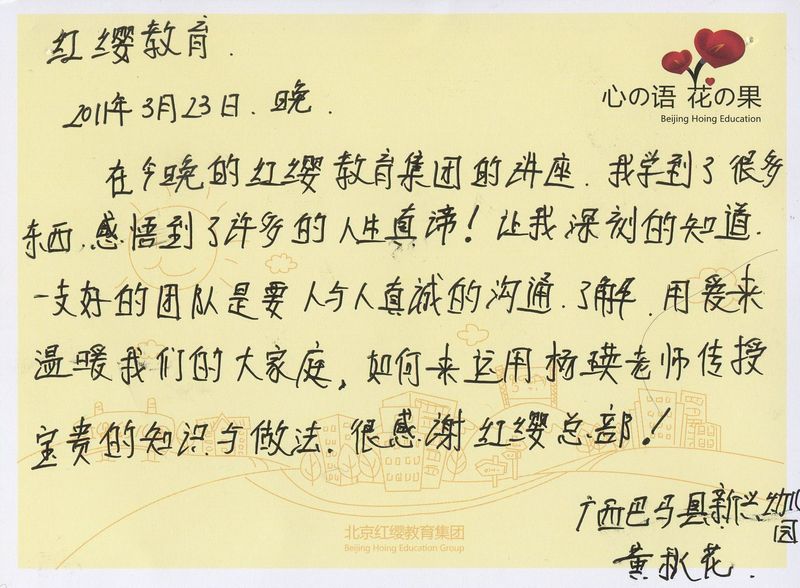 红缨教育.
心の语 花の果
Beijing Hoing Education
2011年3月23日.晚.
在今晚的红缨教育集团的讲座.我学到了很多
东西.感悟到了许多的人生真谛!让我深刻的知道.
一支好的团队是要人与人真诚的沟通.了解.用爱来
温暖我们的大家庭。如何来运用杨瑛老师传授
宝贵的知识与做法.很感谢红缨总部!
广西巴马县新兴幼儿园
黄 花.
北京红缨教育集团
Beijing Hoing Education Group